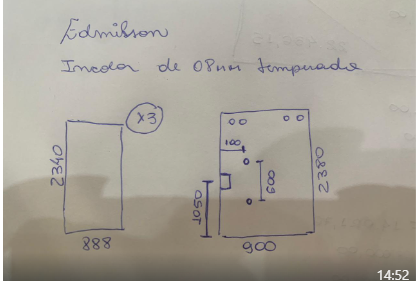 Edmilson
Incolor de 08mm temperado
x3
2340
888
100
600
1050
2380
900
14:52